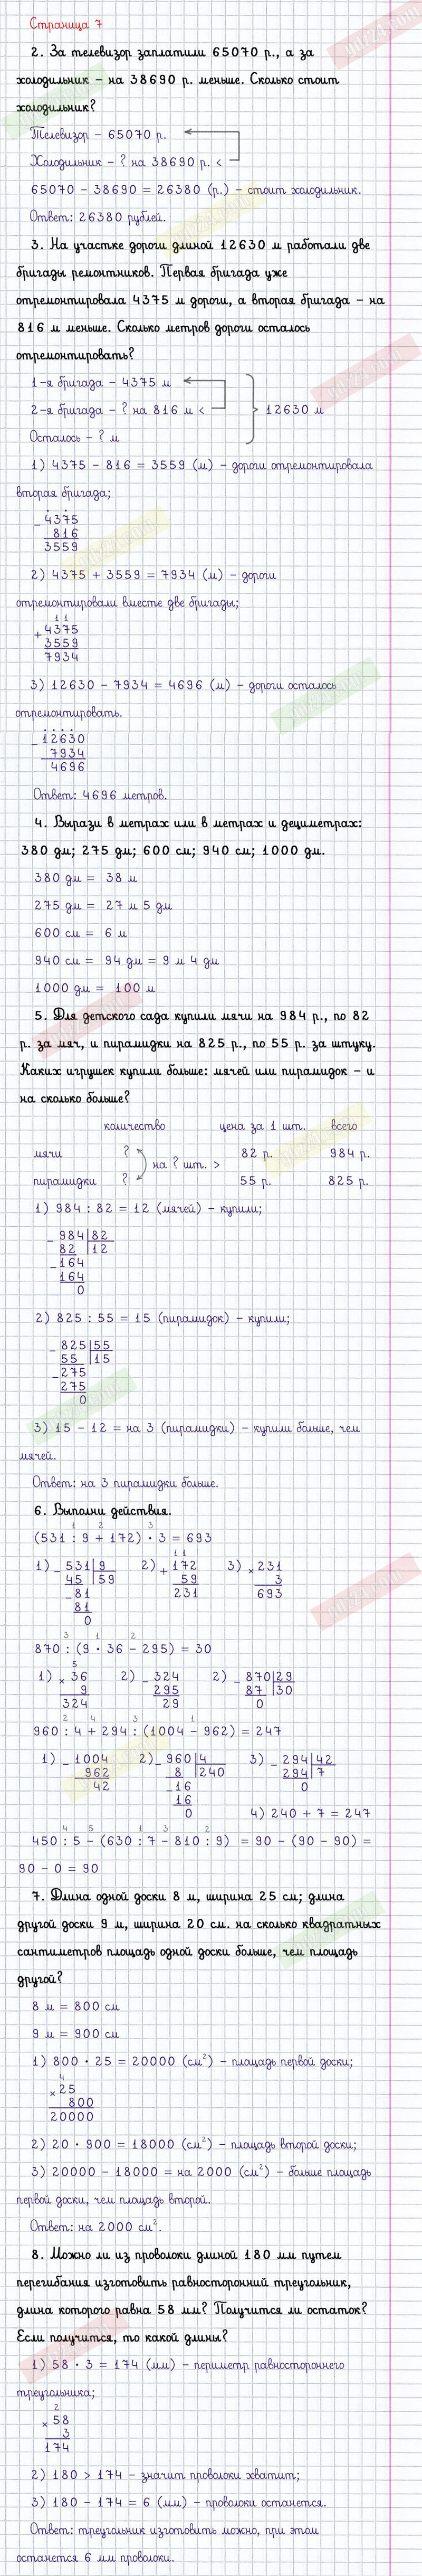 Страница 7
2. За телевизор заплатили 65070 р., а за
холодильник – на 38690 р. меньше. Сколько стоит
холодильник?
Телевизор – 65070 р.
Холодильник – ? на 38690 р. <
65070 – 38690 = 26380 (р.) – стоит холодильник.
Ответ: 26380 рублей.
3. На участке дороги длиной 12630 м работали две
бригады ремонтников. Первая бригада уже
отремонтировала 4375 м дороги, а вторая бригада – на
816 м меньше. Сколько метров дороги осталось
отремонтировать?
1-я бригада – 4375 м
2-я бригада – ? на 816 м < 12630 м
Осталось – ? м
1) 4375 – 816 = 3559 (м) – дороги отремонтировала
вторая бригада;
– 4375
816
3559
2) 4375 + 3559 = 7934 (м) – дороги
отремонтировали вместе две бригады;
1 1
+ 4375
3559
7934
3) 12630 – 7934 = 4696 (м) – дороги осталось
отремонтировать.
– 12630
7934
4696
Ответ: 4696 метров.
4. Вырази в метрах или в метрах и дециметрах:
380 дм; 275 дм; 600 см; 940 см; 1000 дм.
380 дм = 38 м
275 дм = 27 м 5 дм
600 см = 6 м
940 см = 94 дм = 9 м 4 дм
1000 дм = 100 м
5. Для детского сада купили мячи на 984 р., по 82
р. за мяч, и пирамидки на 825 р., по 55 р. за штуку.
Каких игрушек купили больше: мячей или пирамидок – и
на сколько больше?
количество цена за 1 шт. всего
мячи ? 82 р. 984 р.
на ? шт. >
пирамидки ? 55 р. 825 р.
1) 984 : 82 = 12 (мячей) – купили;
– 984 82
82 12
– 164
164
0
2) 825 : 55 = 15 (пирамидок) – купили;
– 825 55
55 15
– 275
275
0
3) 15 – 12 = на 3 (пирамидки) – купили больше, чем
мячей.
Ответ: на 3 пирамидки больше.
6. Выполни действия.
1 2 3
(531 : 9 + 172) · 3 = 693
1 1
1) – 531 9 2) + 172 3) × 231
45 59 59 3
– 81 231 693
81
0
3 1 2
870 : (9 · 36 – 295) = 30
5
1) × 36 2) – 324 2) – 870 29
9 295 87 30
324 29 0
2 4 3 1
960 : 4 + 294 : (1004 – 962) = 247
1) – 1004 2) – 960 4 3) – 294 42
962 8 240 294 7
42 – 16 0
16
0 4) 240 + 7 = 247
4 5 1 3 2
450 : 5 – (630 : 7 – 810 : 9) = 90 – (90 – 90) =
90 – 0 = 90
7. Длина одной доски 8 м, ширина 25 см; длина
другой доски 9 м, ширина 20 см. на сколько квадратных
сантиметров площадь одной доски больше, чем площадь
другой?
8 м = 800 см
9 м = 900 см
1) 800 · 25 = 20000 (см²) – площадь первой доски;
4
× 25
800
20000
2) 20 · 900 = 18000 (см²) – площадь второй доски;
3) 20000 – 18000 = на 2000 (см²) – больше площадь
первой доски, чем площадь второй.
Ответ: на 2000 см².
8. Можно ли из проволоки длиной 180 мм путем
перегибания изготовить равносторонний треугольник,
длина которого равна 58 мм? Получится ли остаток?
Если получится, то какой длины?
1) 58 · 3 = 174 (мм) – периметр равностороннего
треугольника;
2
× 58
3
174
2) 180 > 174 – значит проволоки хватит;
3) 180 – 174 = 6 (мм) – проволоки останется.
Ответ: треугольник изготовить можно, при этом
останется 6 мм проволоки.